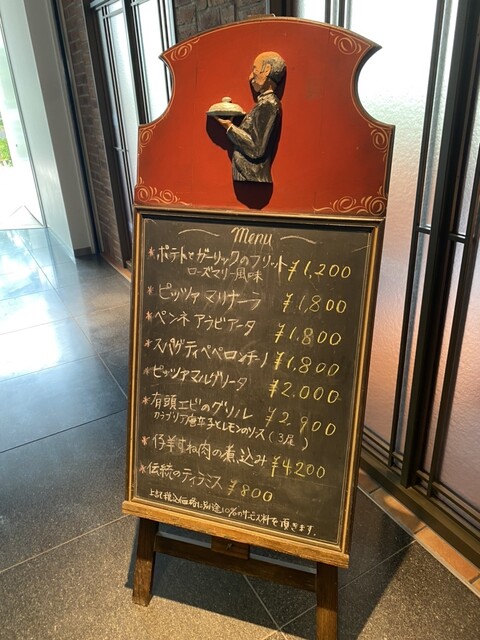 Menu
*ポテトとガーリックのフリット
ローズマリー風味 ¥1,200
*ピッツァ マリナーラ ¥1,800
*ペンネ アラビアータ ¥1,800
*スパゲティペペロンチーノ ¥1,800
*ピッツァマルゲリータ ¥2,000
*有頭エビのグリル ¥2,900
カラブリア唐辛子とレモンのソース(3尾)
*仔羊すね肉の煮込み ¥4200
*伝統のティラミス ¥800
上記税込価格に別途10%のサービス料を頂きます.